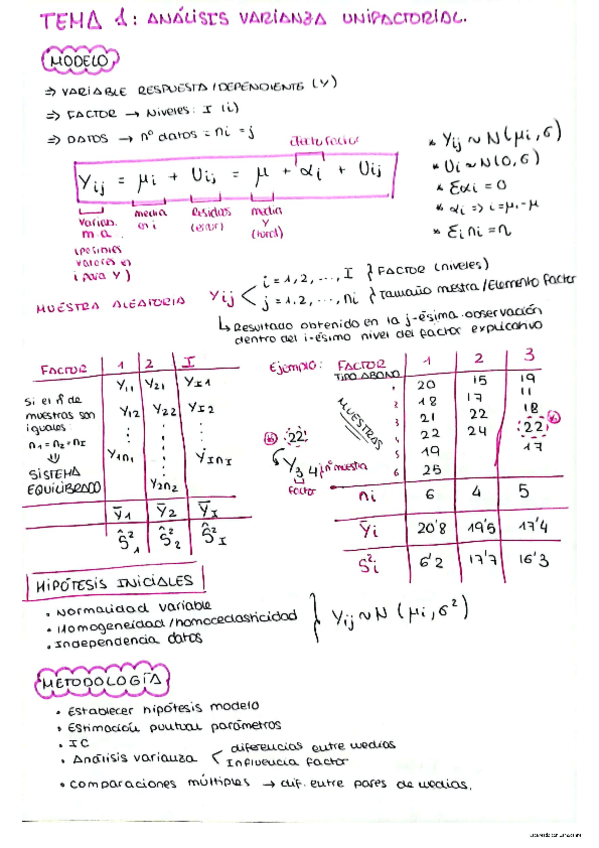 TEMA 1: ANÁLISIS VARIANZA UNIFACTORIAL.
MODELO
⇒ VARIABLE RESPUESTA/DEPENDIENTE (Y)
⇒ FACTOR → Niveles: I (i)
⇒ DATOS → nº datos = ni = j
efecto factor
Yij = μi + Uij = μ + αi + Uij
Variab. m.a. (posibles valores en i para Y)
media en i
Residuos (error)
media Y (total)
* Yij ~ N(μi, σ)
* Ui ~ N(0, σ)
* Σαi = 0
* αi ⇒ i = μi - μ
* Σi ni = n
MUESTRA ALEATORIA Yij
i = 1, 2, ..., I } FACTOR (niveles)
j = 1, 2, ..., ni } Tamaño muestra/Elemento factor
↳ Resultado obtenido en la j-ésima observación
dentro del i-ésimo nivel del factor explicativo
FACTOR 1 2 I
Y11 Y21 YI1
Y12 Y22 YI2
⋮ ⋮ ⋮
Y1n1 Y2n2 YInI
Ȳ1 Ȳ2 ȲI
Ŝ²1 Ŝ²2 Ŝ²I
Si el nº de
muestras son
iguales:
n1 = n2 = nI
⇓
SISTEMA
EQUILIBRADO
Ejemplo: FACTOR 1 2 3
TIPO ABONO
MUESTRAS
1 20 15 19
2 18 17 11
3 21 22 18
4 22 24 22
5 19 17
6 25
ni 6 4 5
Ȳi 20'8 19'5 17'4
Ŝ²i 6'2 17'7 16'3
22
Y3 4 nº muestra
factor
HIPÓTESIS INICIALES
• Normalidad variable
• Homogeneidad/homocedasticidad
• Independencia datos
} Yij ~ N (μi, σ²)
METODOLOGÍA
• Establecer hipótesis modelo
• Estimación puntual parámetros
• IC
• Análisis varianza < diferencias entre medias
Influencia factor
• Comparaciones múltiples → dif. entre pares de medias.